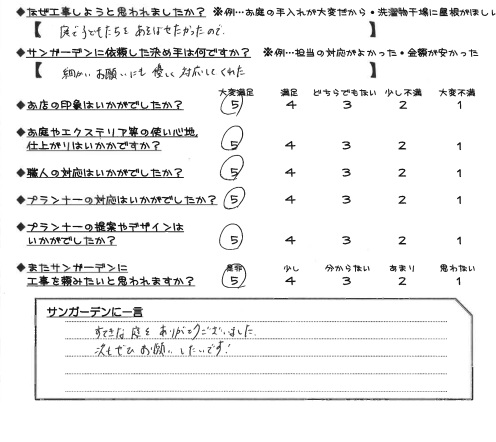 ◆なぜ工事しようと思われましたか? ※例…お庭の手入れが大変だから・洗濯物干場に屋根がほしい
【 庭で子どもたちをあそばせたかったので。 】
◆サンガーデンに依頼した決め手は何ですか? ※例…担当の対応がよかった・金額が安かった
【 細かいお願いにも優しく対応してくれた 】
大変満足 満足 どちらでもない 少し不満 大変不満
◆お店の印象はいかがでしたか? 5 4 3 2 1
◆お庭やエクステリア等の使い心地、
仕上がりはいかがですか? 5 4 3 2 1
◆職人の対応はいかがでしたか? 5 4 3 2 1
◆プランナーの対応はいかがでしたか? 5 4 3 2 1
◆プランナーの提案やデザインは
いかがでしたか? 5 4 3 2 1
◆またサンガーデンに 是非 少し 分からない あまり 思わない
工事を頼みたいと思われますか? 5 4 3 2 1
サンガーデンに一言
すてきな庭をありがとうございました。
次もぜひお願いしたいです!